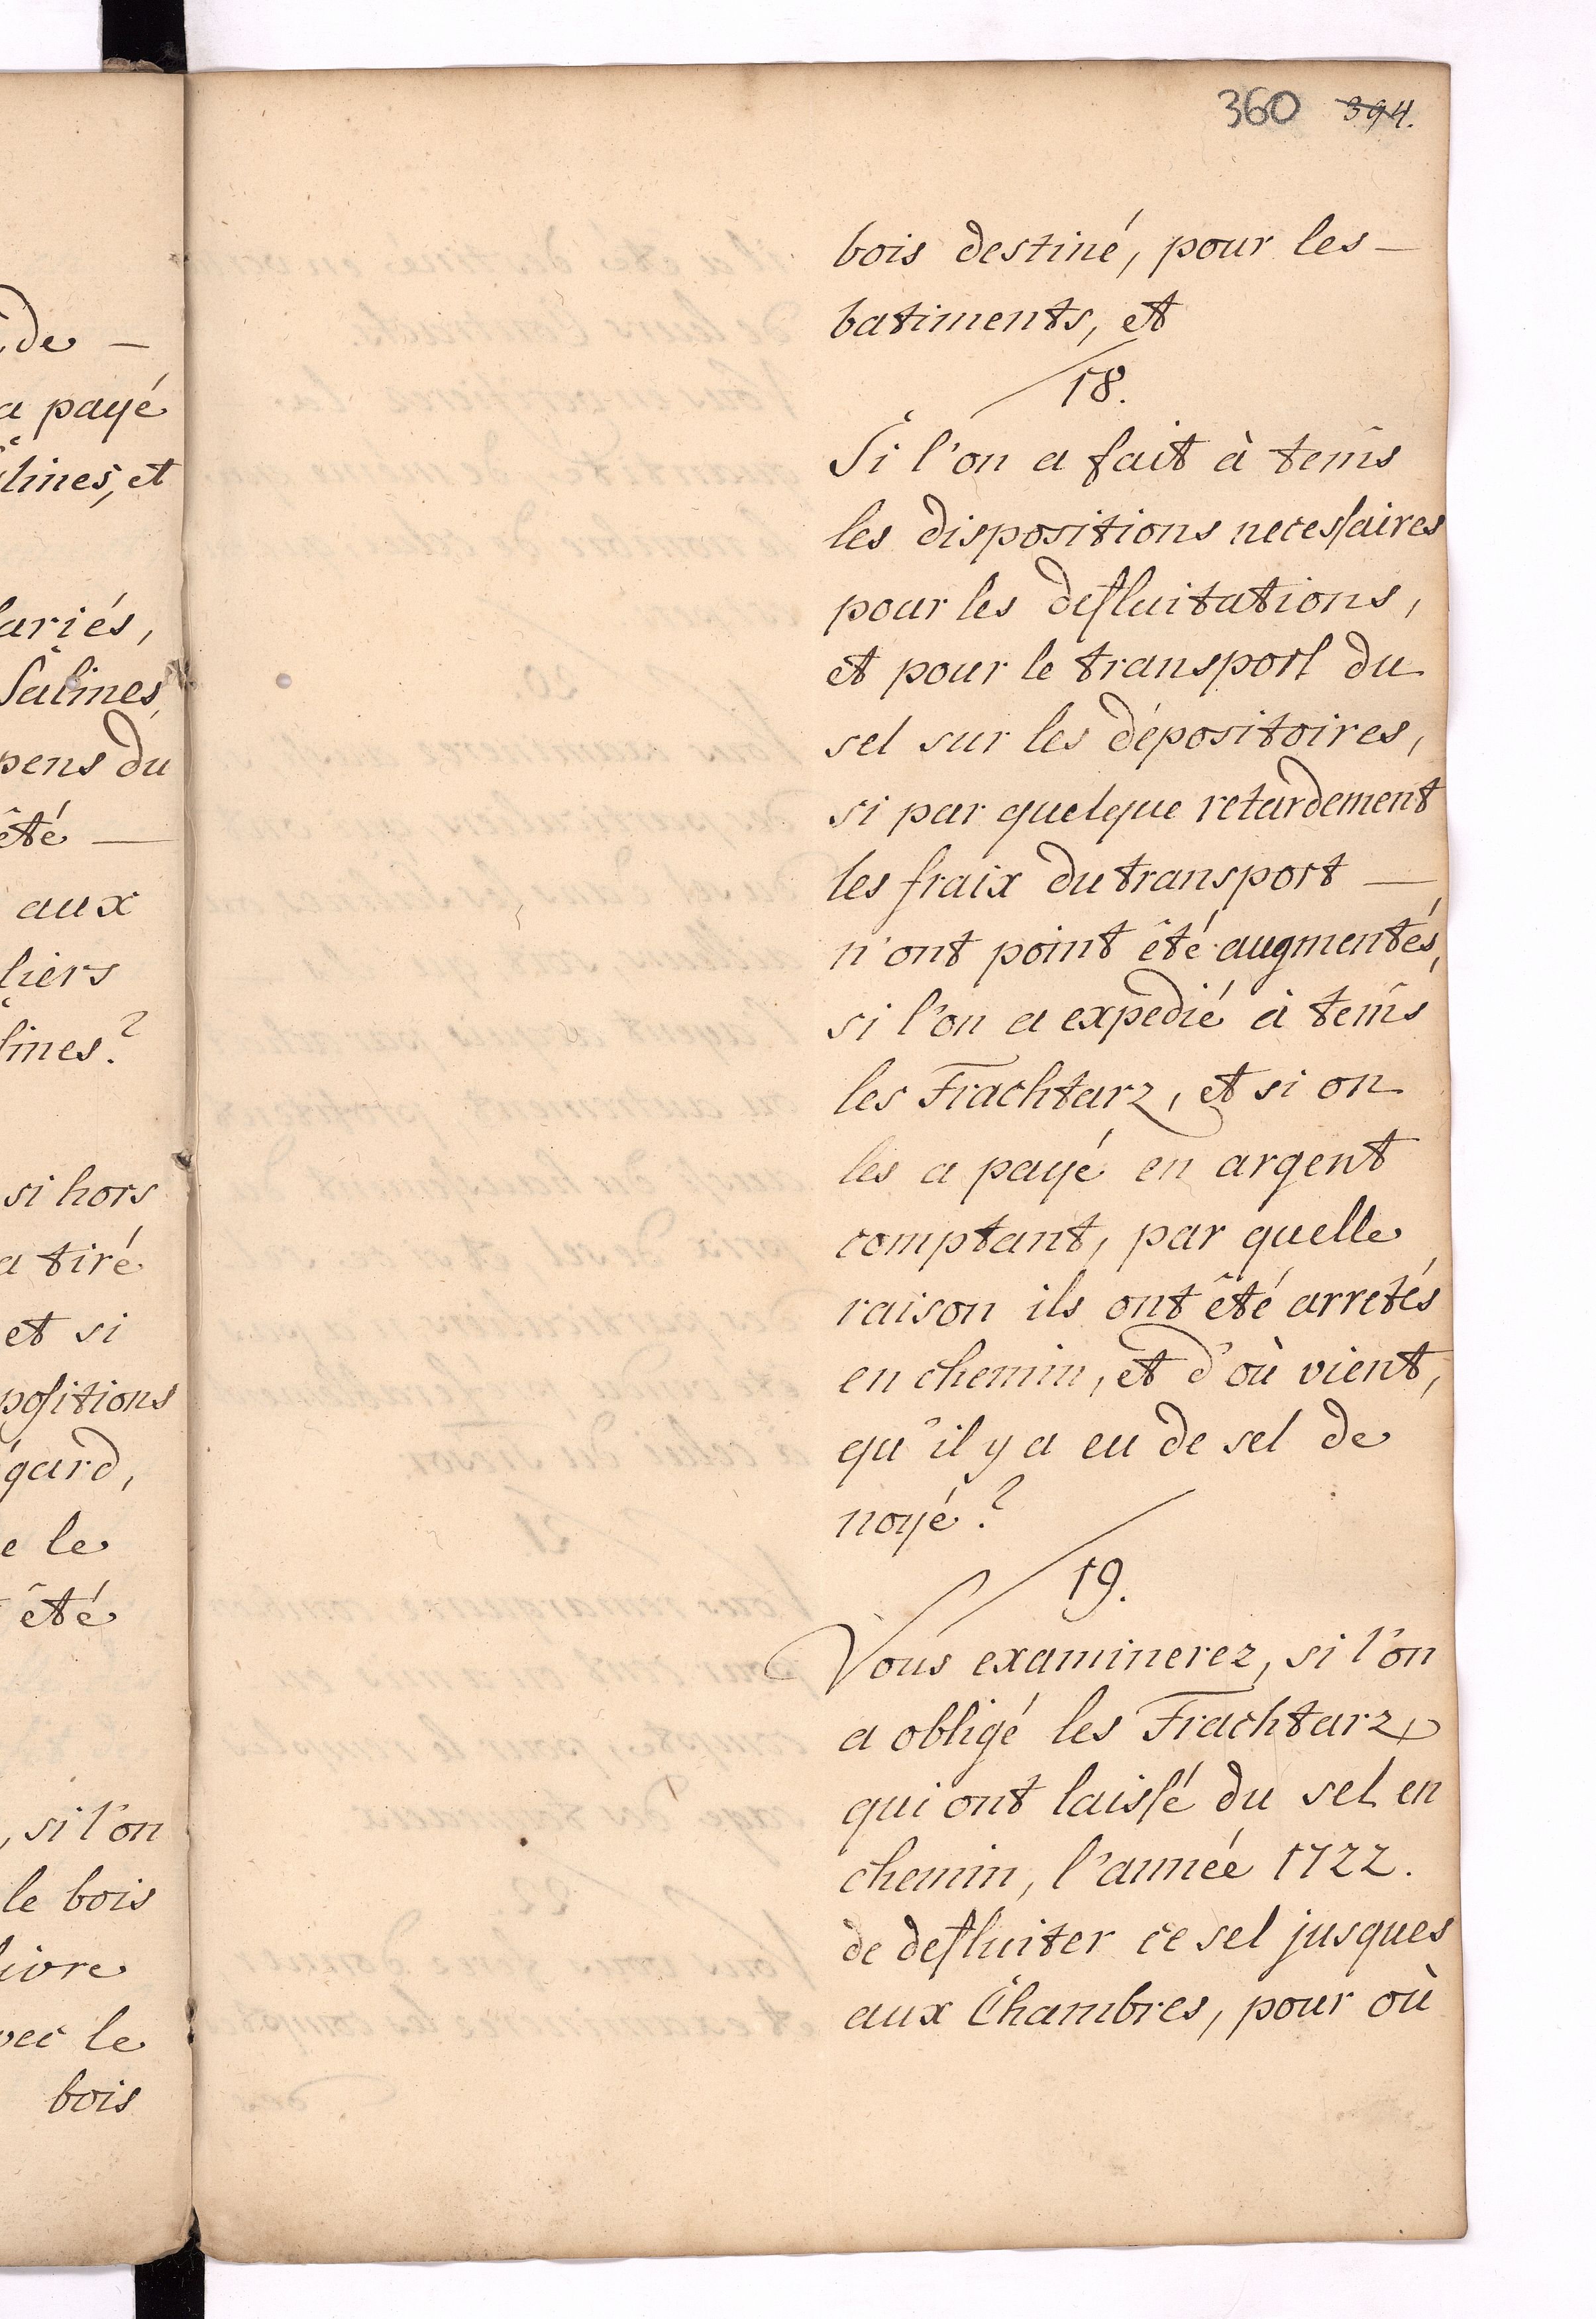 de —
a payé
lines, et
lariés,
Salines,
pens du
êté —
aux
liers
lines?
si hors
a tiré
et si
positions
égard,
e le
êté
, si l'on
le bois
livre
vec le
bois
360 394.
bois destiné, pour les —
batiments, et
18.
Si l'on a fait à tem̃s
les dispositions necessaires
pour les defluitations,
et pour le transport du
sel sur les dépositoires,
si par quelque retardement
les fraix du transport —
n'ont point êté augmentés,
si l'on a expedié à tem̃s
les Frachtarz, et si on
les a payé en argent
comptant, par quelle
raison ils ont êté arretés
en chemin, et d'où vient,
qu'il y a eu de sel de
noyé?
19.
Vous examinerez, si l'on
a obligé les Frachtarz,
qui ont laissé du sel en
chemin, l'année 1722.
de defluiter ce sel jusques
aux Chambres, pour où